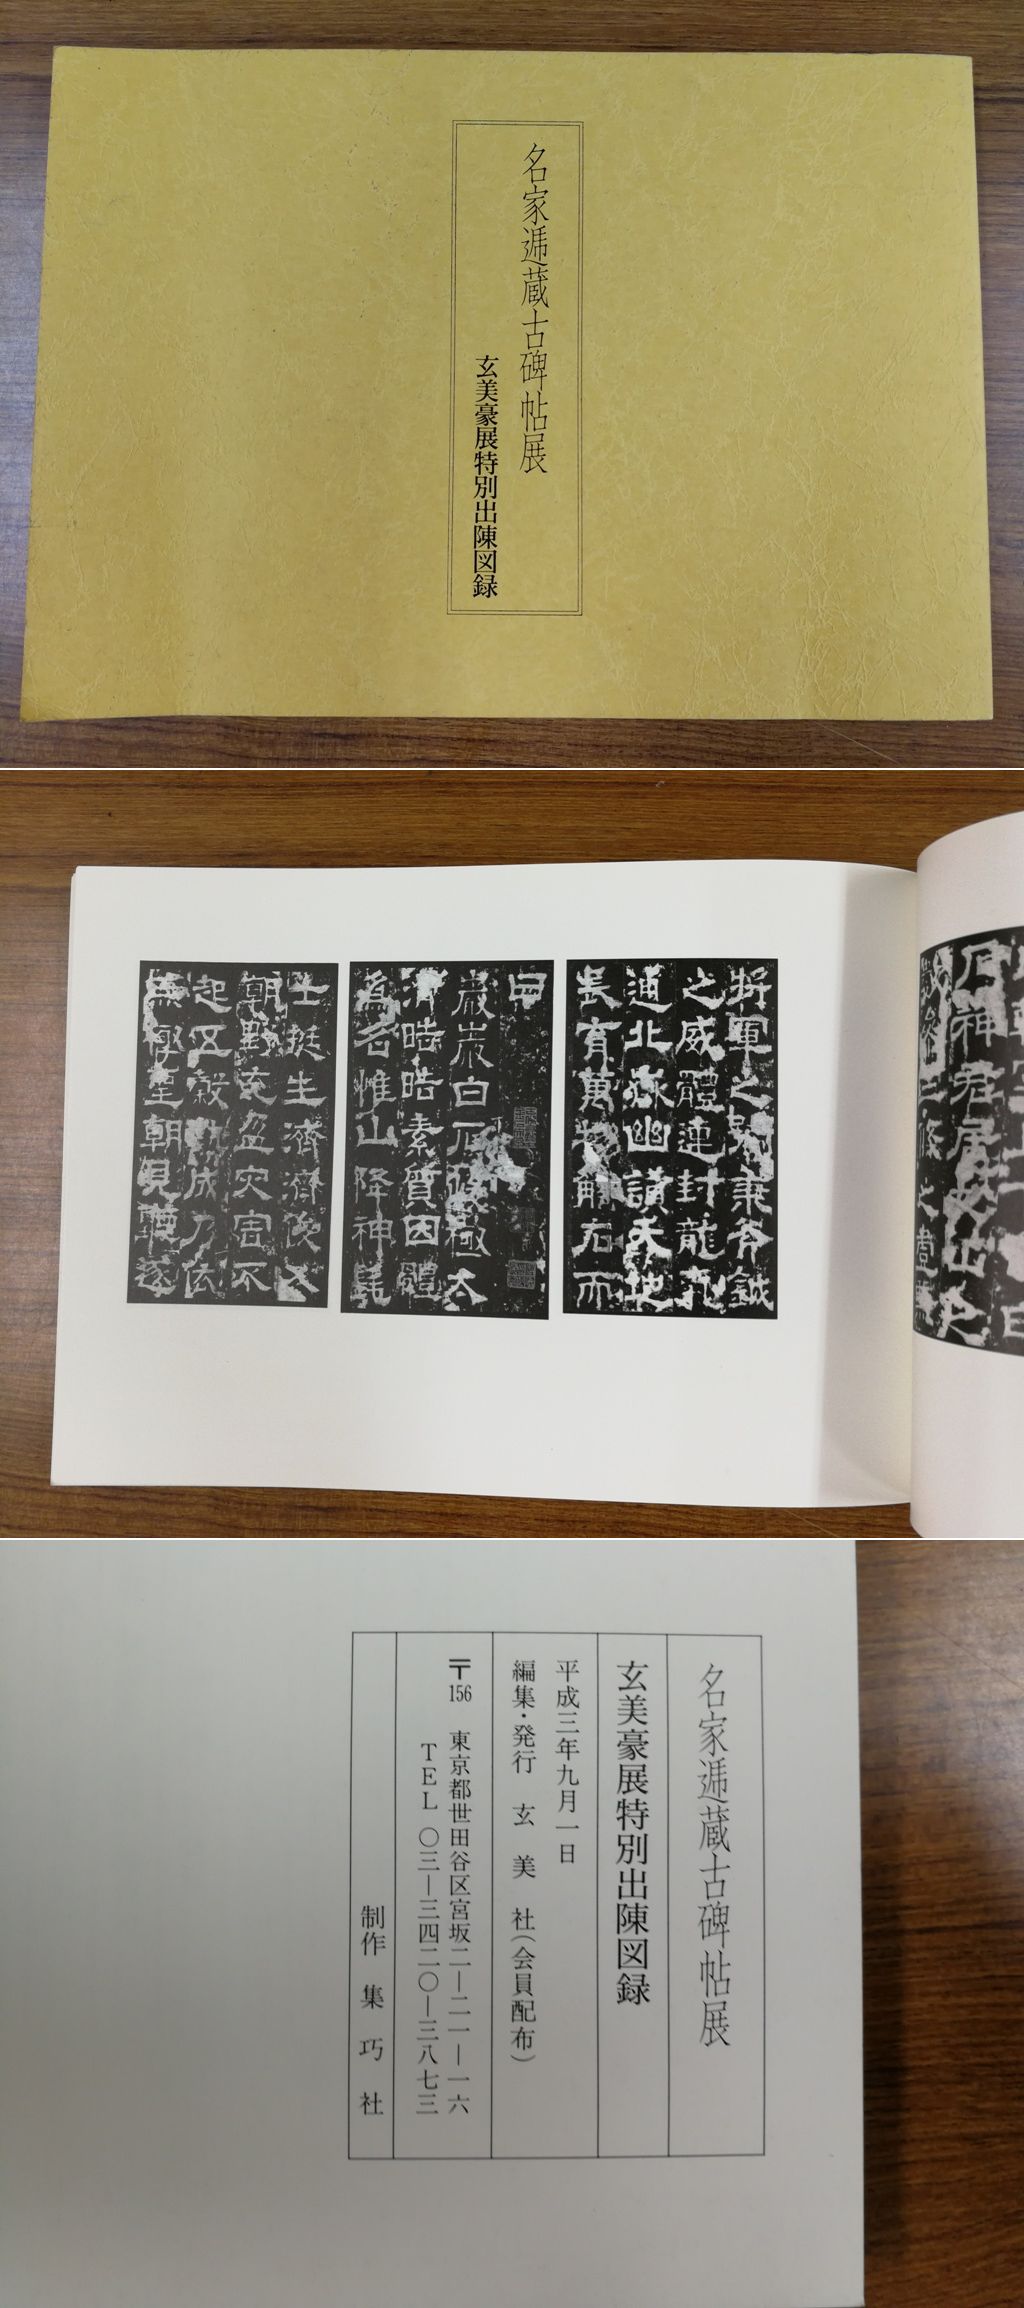 名家逓蔵古碑帖展
玄美豪展特別出陳図録
将軍之号秉斧鉞
之威體連封龍
通北嶽幽讃天地
長育萬物触石而
曰
巌巌白石峻極太
清皓皓素質因體
為名惟山降神髦
士挺生濟濟俊乂
朝野充盈灾害不
起五穀熟成乃依
無極聖朝見聽遂
名家逓蔵古碑帖展
玄美豪展特別出陳図録
平成三年九月一日
編集・発行 玄美社(会員配布)
〒156 東京都世田谷区宮坂二―二一―一六
TEL 〇三―三四二〇―三八七三
制作 集巧社